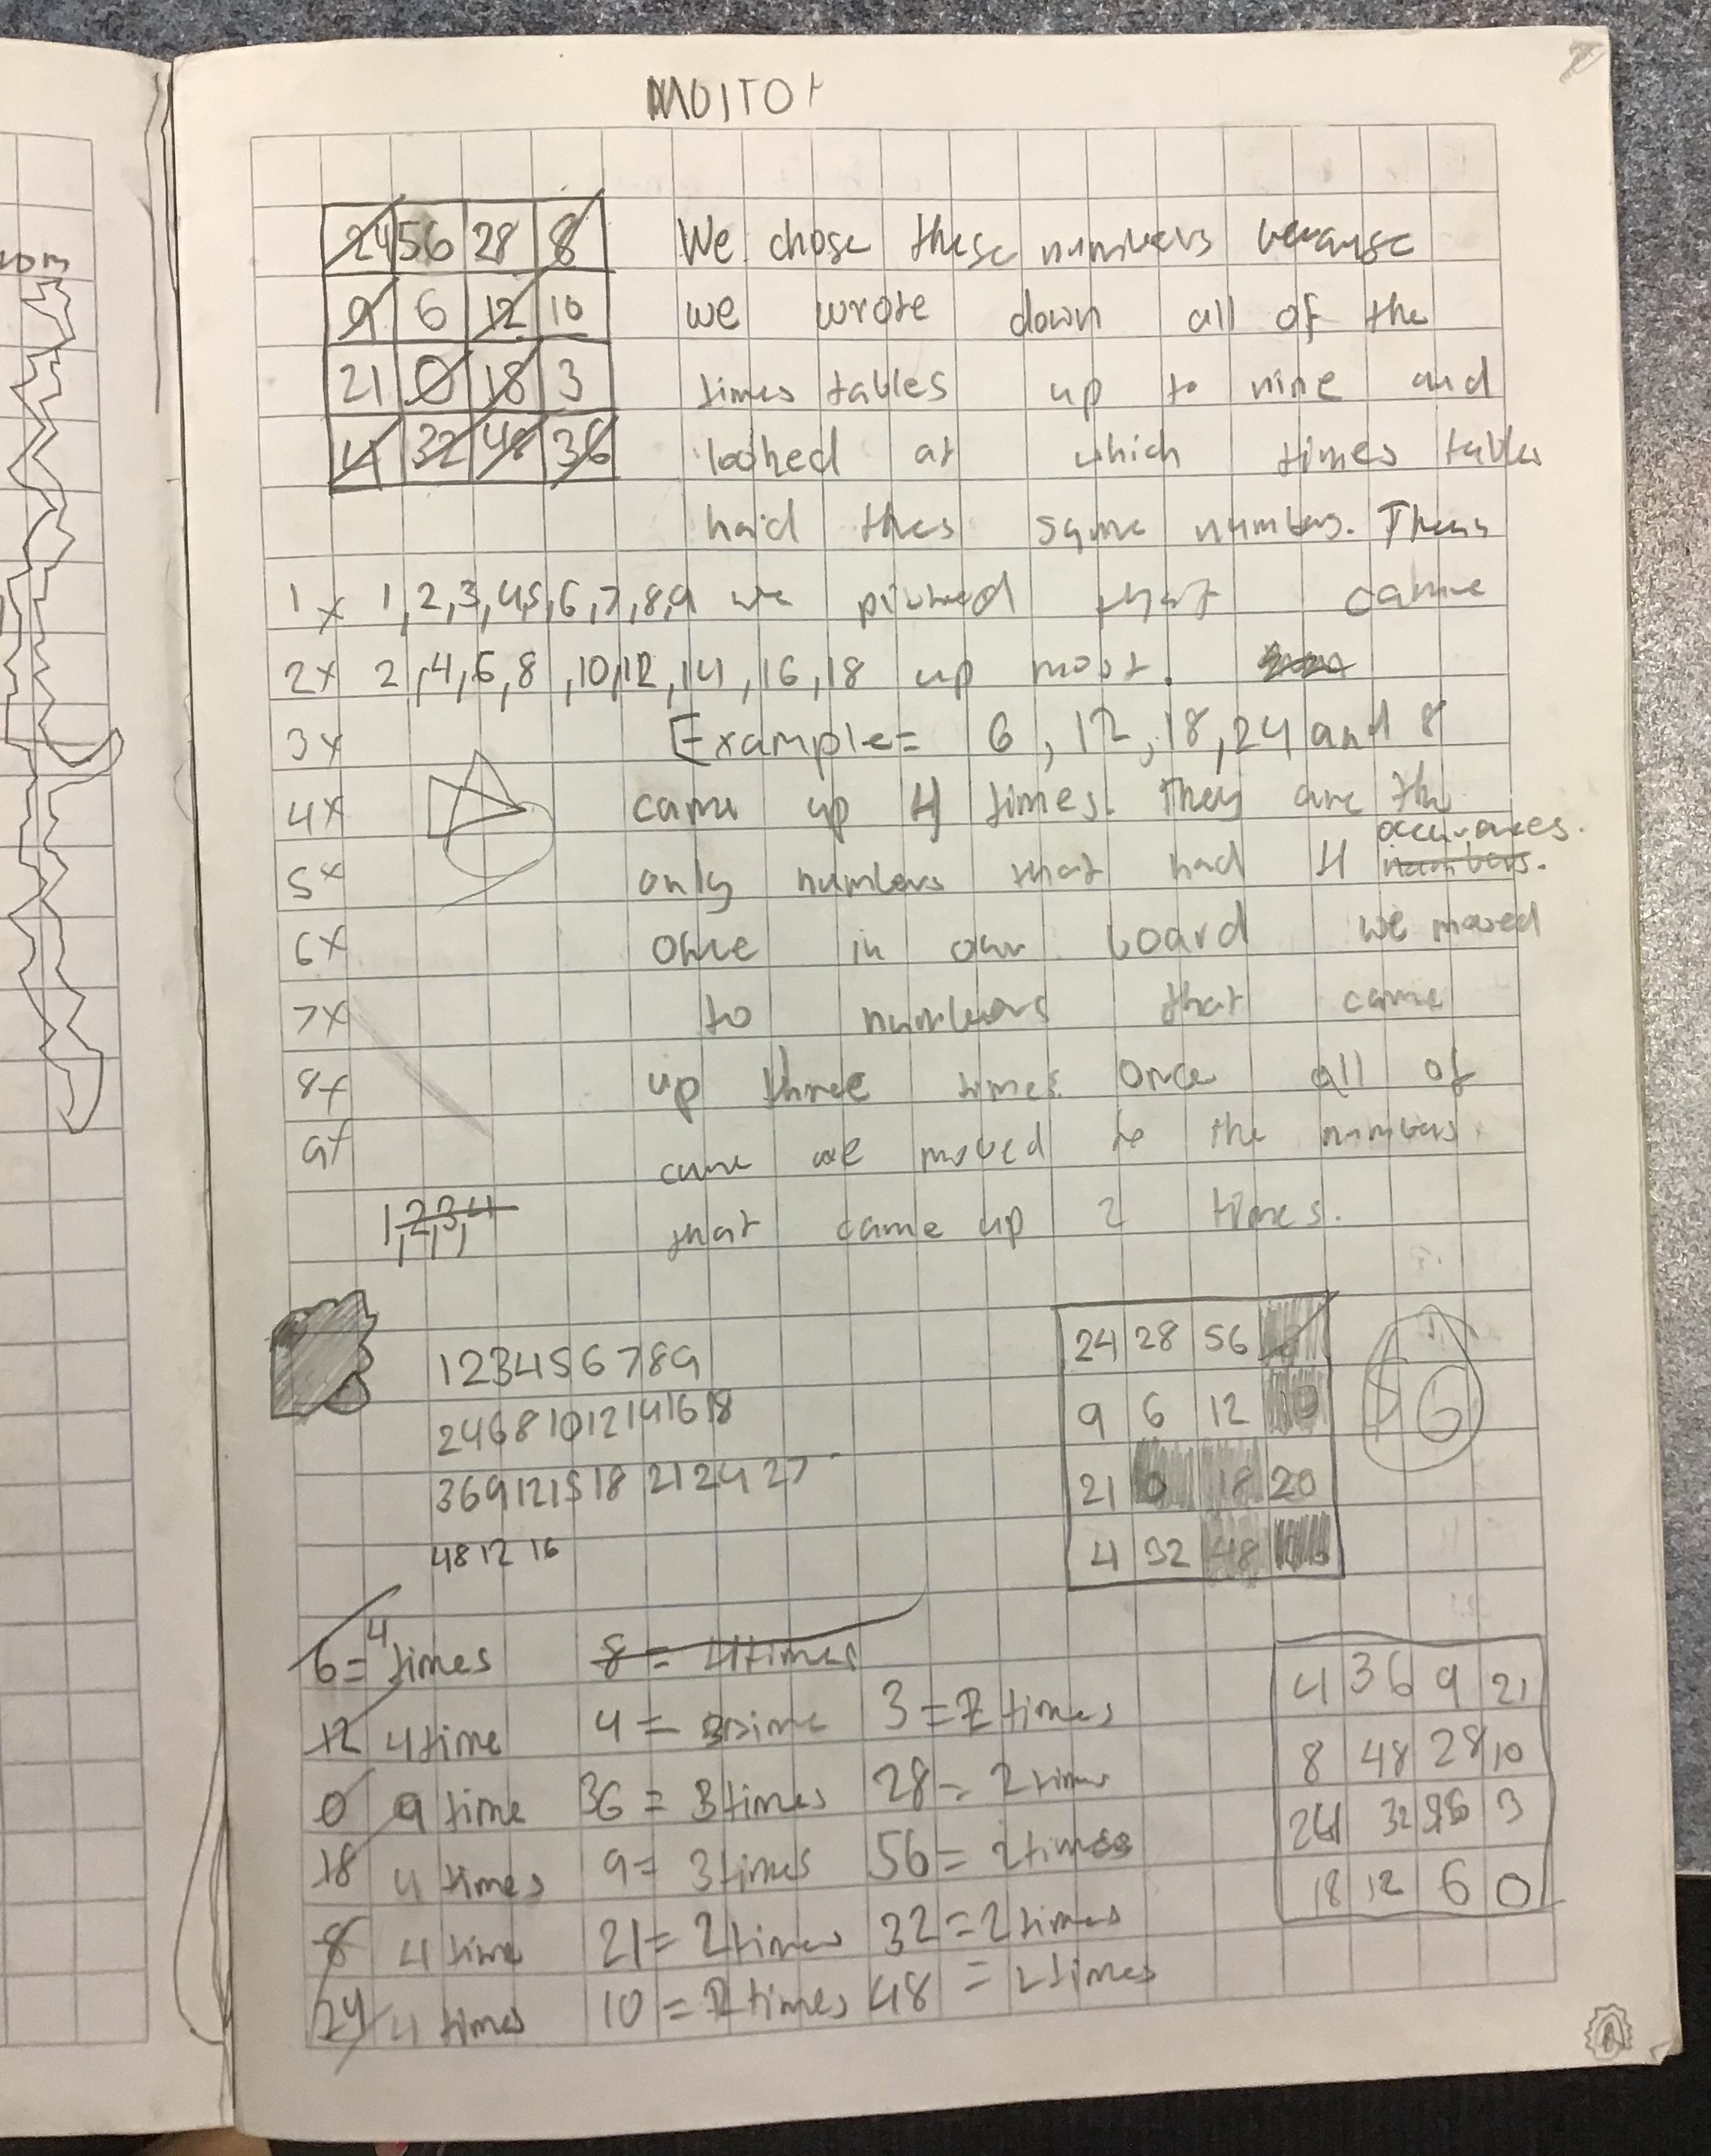 24 56 28 8
9 6 12 10
21 0 18 3
4 32 48 36
We chose these numbers because
we wrote down all of the
times tables up to nine and
looked at which times tables
had thes same numbers. Then
1x 1,2,3,4,5,6,7,8,9 we picked that came
2x 2,4,6,8,10,12,14,16,18 up most.
3x Example= 6, 12, 18, 24 and 8
4x came up 4 times. They are the
5x only numbers that had 4 occurances.
numbers.
6x once in our board we moved
7x to numbers that came
8x up three times. Once all of
9x came we moved to the numbers
1,2,3,4 that came up 2 times.
1 2 3 4 5 6 7 8 9
2 4 6 8 10 12 14 16 18
3 6 9 12 15 18 21 24 27
4 8 12 16
24 28 56
9 6 12 10
21 0 18 20
4 32 48
6= 4 times 8= 4 times
12 4 time 4= 3 time 3=2 times
0 9 time 36= 3 times 28= 2 times
18 4 times 9= 3 times 56= 2 times
8 4 time 21= 2 times 32=2 times
24 4 times 10= 2 times 48 = 2 times
4 36 9 21
8 48 28 10
24 32 56 3
18 12 6 0